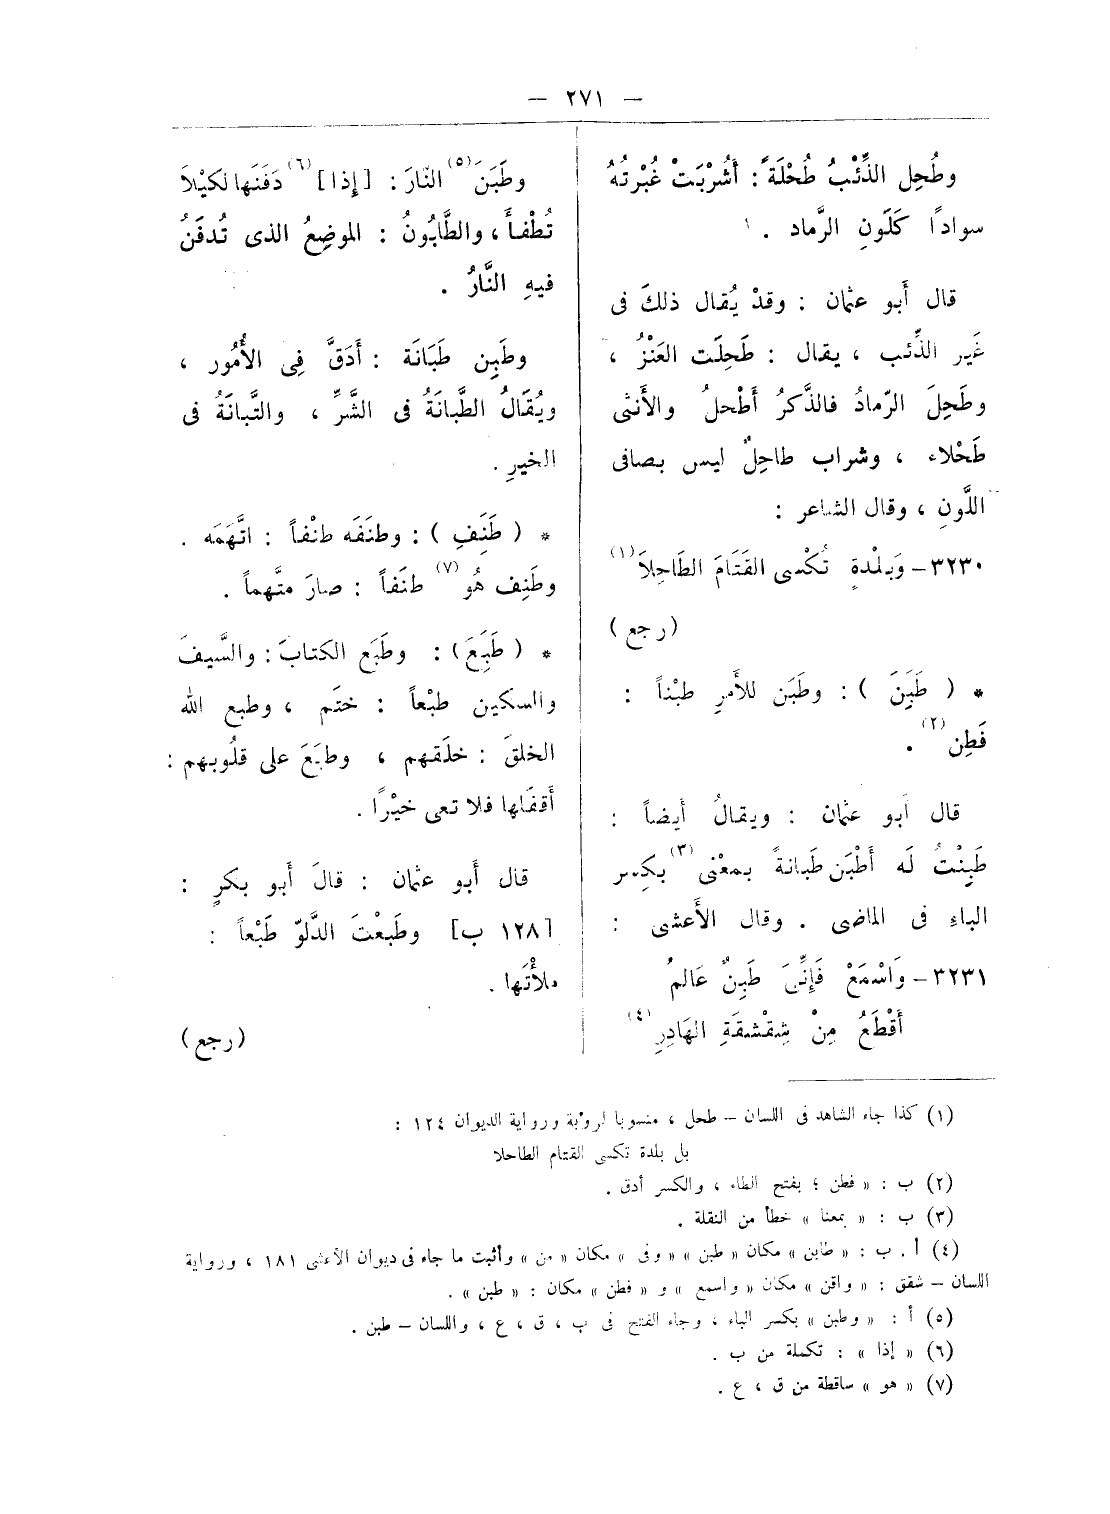 — ٢٧١ —
وطُحِل الذِّئْبُ طُحْلَةً : أُشْرِبَتْ غُبْرتُهُ
سواداً كَلَونِ الرَّماد .
قال أَبو عثمان : وقدْ يُقال ذلكَ فى
غَيرِ الذِّئب ، يقال : طَحِلَت العَنْزُ ،
وطَحِلَ الرّمادُ فالذَّكرُ أَطْحلُ والأُنثى
طَحْلاء ، وشراب طاحِلٌ ليس بصافى
اللَّونِ ، وقال الشاعر :
٣٢٣٠ – وَبَلْدةٍ تُكْسى القَتَامَ الطَاحِلاَ (١)
(رجع)
* ( طَبَِنَ ) : وطَبَن للأَمرِ طبْناً :
فَطِن (٢) .
قال أبو عثمان : ويقالُ أيضاً :
طَبِنْتُ لَه أَطْبَن طَبانةً بمعْنى (٣) بكِسر
الباءِ فى الماضى . وقال الأَعشى :
٣٢٣١ – وَاسْمَعْ فَإِنِّى طَبِنٌ عَالمٌ
أَقْطَعُ مِنْ شِقْشقَةِ الهَادِرِ (٤)
وطَبَنَ (٥) النّارَ : [إِذا] (٦) دَفَنَها لكيْلاَ
تُطْفأَ ، والطَّابُونُ : الموضِعُ الذى تُدفَنُ
فيهِ النَّارُ .
وطَبِن طَبَانَة : أَدَقَّ فِى الأُمُور ،
ويُقَالُ الطَّبانَةُ فى الشَّرِّ ، والتَّبانَةُ فى
الخيرِ .
* ( طَنَِف ) : وطنَفَه طنْفاً : اتَّهَمَه .
وطَنِف هُو (٧) طنَفاً : صارَ متَّهماً .
* ( طَبَِعَ ) : وطَبَع الكتابَ : والسَّيفَ
والسكين طبْعاً : ختَم ، وطبع الله
الخلقَ : خلَقهم ، وطبَعَ على قلُوبهم :
أَقفَلها فلا تعى خيْرًا .
قال أَبو عثمان : قالَ أَبو بكرٍ :
[١٢٨ ب] وطَبعْتَ الدَّلوّ طَبْعاً :
ملأْتَها .
(رجع)
(١) كذا جاء الشاهد فى اللسان – طحل ، منسوبا لرؤبة ورواية الديوان ١٢٤ :
بل بلدة تكسى القتام الطاحلا
(٢) ب : « فطن ؛ بفتح الطاء ، والكسر أدق .
(٣) ب : « بمعنا » خطأ من النقلة .
(٤) أ . ب : « طابن » مكان « طبن » « وفى » مكان « من » وأثبت ما جاء فى ديوان الأعشى ١٨١ ، ورواية
اللسان – شقق : « واقن » مكان « واسمع » و « فطن » مكان : « طبن » .
(٥) أ : « وطبن » بكسر الباء ، وجاء الفتح فى ب ، ق ، ع ، واللسان – طبن .
(٦) « إذا » : تكملة من ب .
(٧) « هو » ساقطة من ق ، ع .